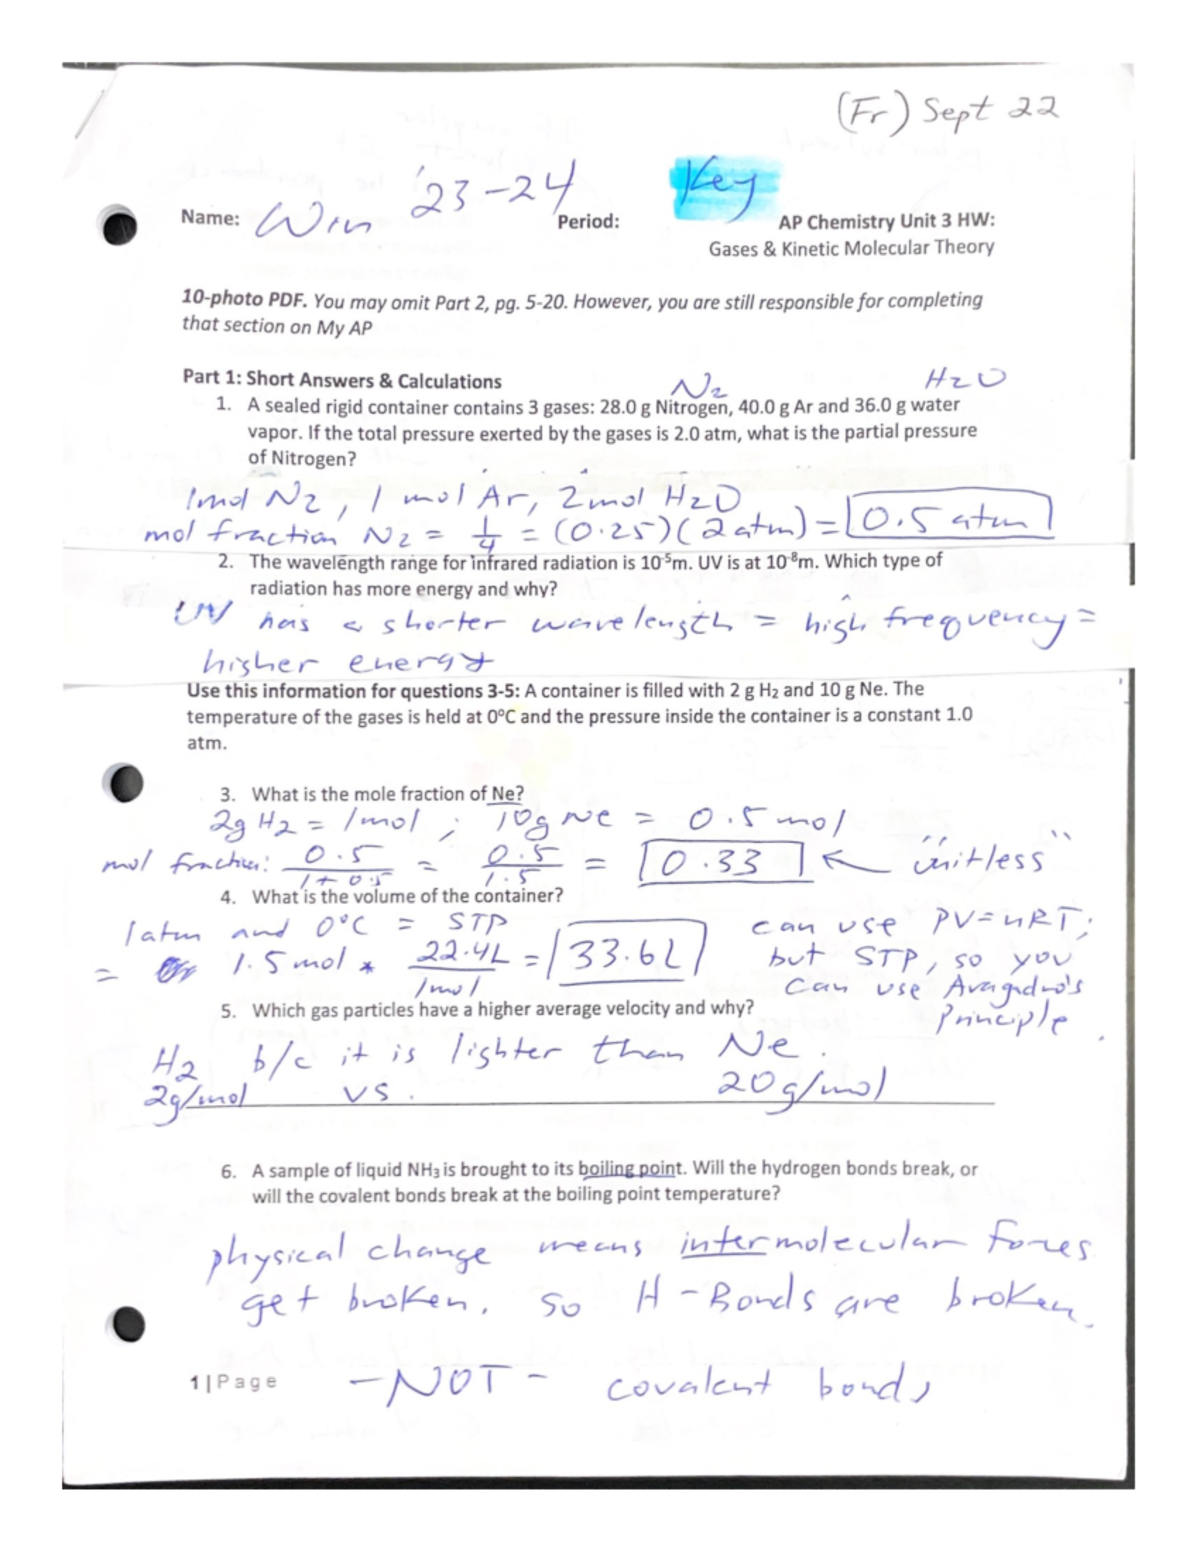 (Fr) Sept 22
Name: Win '23-24 Period: Key AP Chemistry Unit 3 HW:
Gases & Kinetic Molecular Theory
10-photo PDF. You may omit Part 2, pg. 5-20. However, you are still responsible for completing
that section on My AP
Part 1: Short Answers & Calculations
N2 H2O
1. A sealed rigid container contains 3 gases: 28.0 g Nitrogen, 40.0 g Ar and 36.0 g water
vapor. If the total pressure exerted by the gases is 2.0 atm, what is the partial pressure
of Nitrogen?
1mol N2, 1 mol Ar, 2mol H2O
mol fraction N2 = 1/4 = (0.25)(2atm) = 0.5 atm
2. The wavelength range for infrared radiation is 10⁻⁵m. UV is at 10⁻⁸m. Which type of
radiation has more energy and why?
UV has a shorter wavelength = high frequency =
higher energy
Use this information for questions 3-5: A container is filled with 2 g H₂ and 10 g Ne. The
temperature of the gases is held at 0°C and the pressure inside the container is a constant 1.0
atm.
3. What is the mole fraction of Ne?
2g H2 = 1mol ; 10g Ne = 0.5 mol
mol fraction: 0.5/1+0.5 = 0.5/1.5 = 0.33 ← "unitless"
4. What is the volume of the container?
1atm and 0°C = STP
= 1.5 mol * 22.4L/1mol = 33.6L
can use PV=nRT;
but STP, so you
can use Avagadro's
Principle.
5. Which gas particles have a higher average velocity and why?
H2 b/c it is lighter than Ne.
2g/mol vs. 20g/mol
6. A sample of liquid NH₃ is brought to its boiling point. Will the hydrogen bonds break, or
will the covalent bonds break at the boiling point temperature?
physical change means intermolecular forces
get broken. so H-Bonds are broken.
1 | Page -NOT- covalent bonds